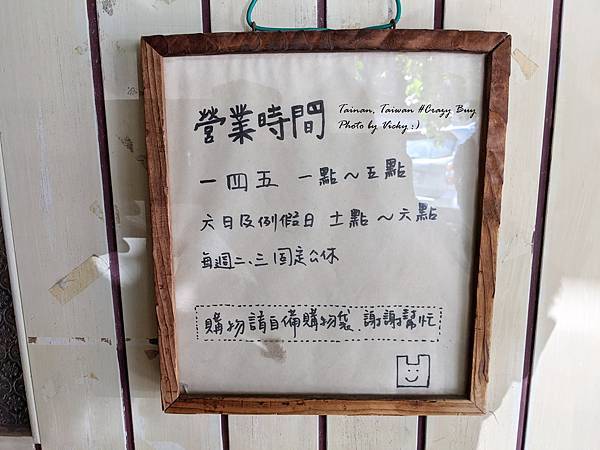 營業時間
Tainan, Taiwan #Crazy Buy
Photo by Vicky :)
一四五 一點～五點
六日及例假日 士點～六點
每週二、三固定公休
購物請自備購物袋.謝謝幫忙